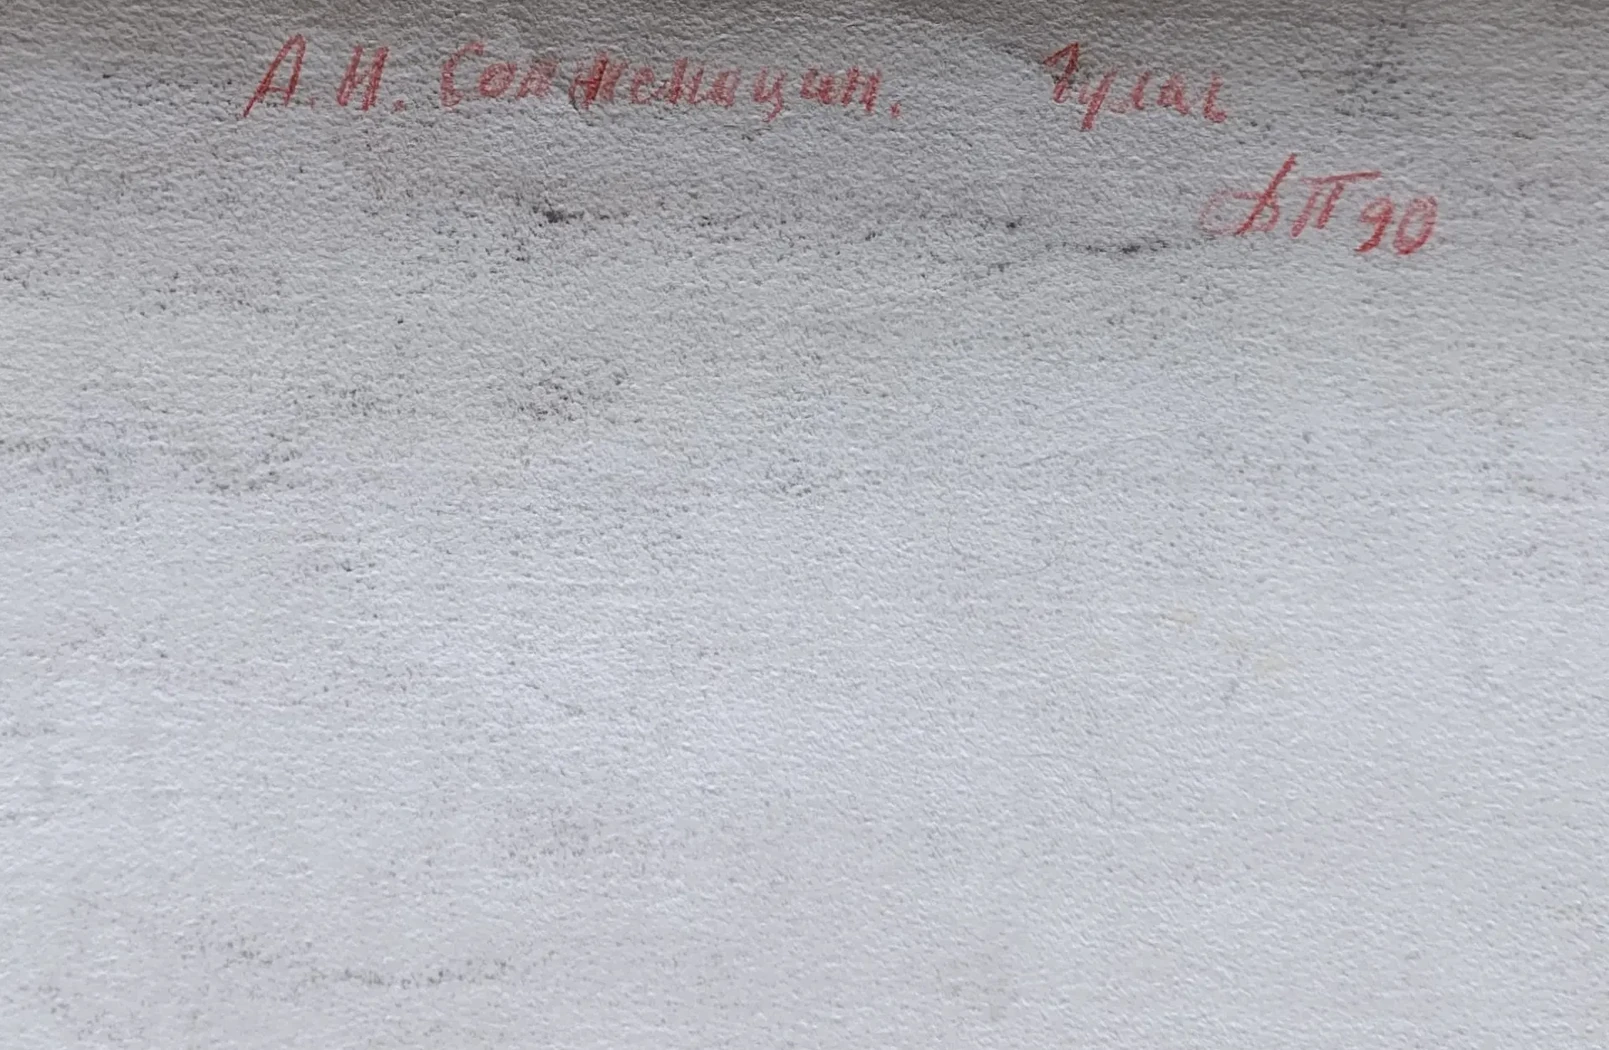 А.Н. Солженицын. Гулаг
ДП 90